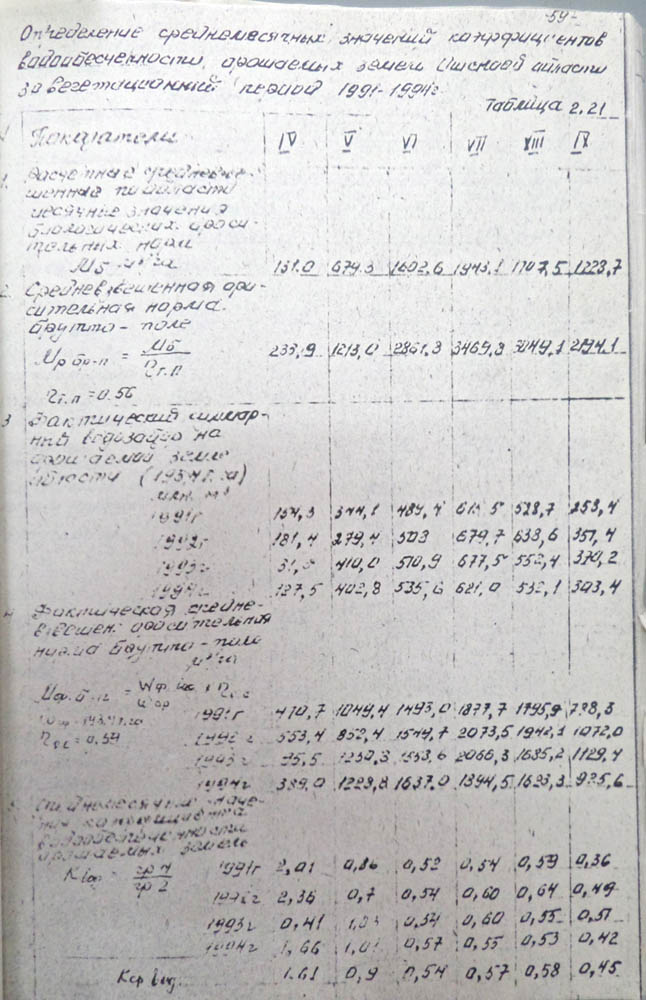 -54-
Определение среднемесячных значений коэффициентов
водообеспеченности орошаемых земель Ошской области
за вегетационный период 1991-1994г.
Таблица 2.21
Показатели IV V VI VII XIII IX
1. Расчетные средневзве-
шенные по области
месячные значения
биологических ороси-
тельных норм
Мб м³/га 131.0 679.3 1602,6 1943,1 1707,5 1228,7
2. Средневзвешенная оро-
сительная норма
брутто - поле
Мр бр-п = Мб / ηт.п 233,9 1213,0 2861,3 3469,8 3049,1 2194,1
ηт.п = 0.56
3 Фактический суммар-
ный водозабор на
орошаемой земле
области (193,4 т.га)
млн. м³
1991г 154,3 344,1 489,4 615,5 528,7 258,4
1992г 181,4 279,4 503 679,7 633,6 351,4
1993г 410,0 510,9 677,5 552,4 370,2
1994г 127,5 402,8 535,6 621,0 532,1 303,4
4 Фактическая средне-
взвешен. оросительная
норма брутто - поле
м³/га
Мф.б-п =
1991г 470,7 1049,4 1493,0 1877,7 738,3
η = 0,59 1992г 553,4 852,4 2073,5 1072,0
1993г 2066,3 1685,2 1129,4
1994г 389,0 1228,8 1637,0 1894,5 1623,3 925,6
5 Среднемесячные значе-
ния коэффициента
водообеспеченности
орошаемых земель
гр 4 / гр 2 1991г 2,01 0,86 0,52 0,54 0,59 0,36
1992г 2,36 0,7 0,54 0,60 0,64 0,49
1993г 0,41 0,54 0,60 0,55 0,51
1994г 1,66 1,01 0,57 0,55 0,53 0,42
Кср вод. 1.61 0,9 0,54 0,57 0,58 0,45